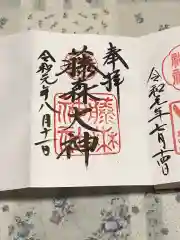 奉拝
藤森大神
令和元年八月十一日
令和元年七月十四日